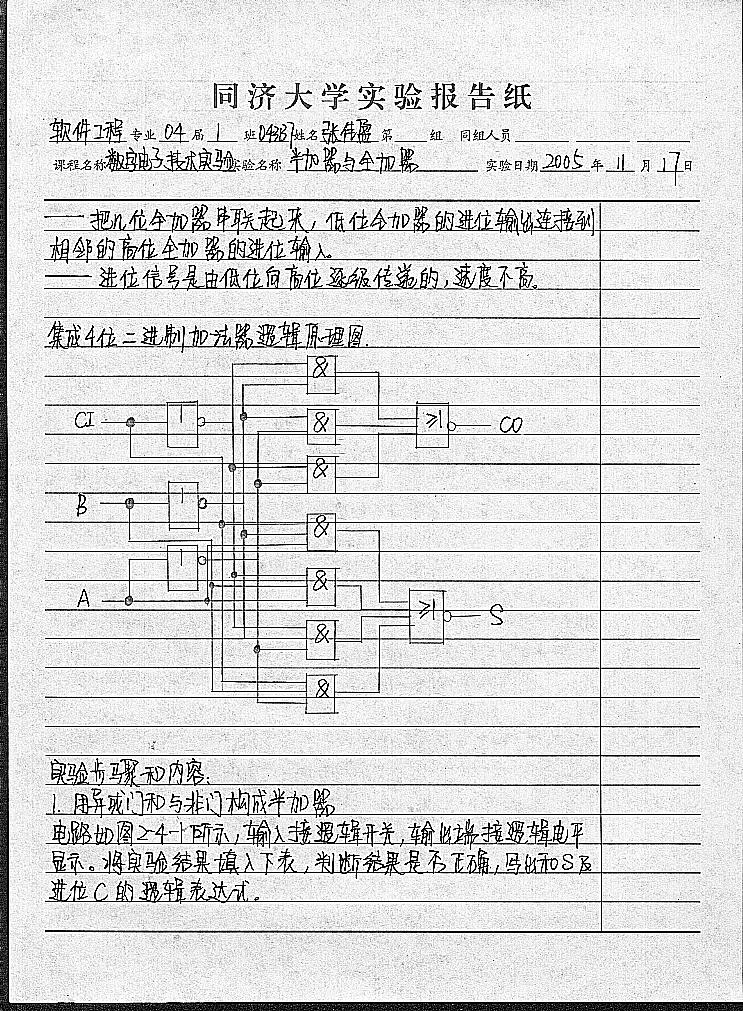 同济大学实验报告纸
软件工程 专业 04 届 1 班 姓名 张佳 第 组 同组人员
课程名称 数字电子技术实验 实验名称 半加器与全加器 实验日期 2005 年 11 月 17 日
—— 把n位全加器串联起来，低位全加器的进位输出连接到
相邻的高位全加器的进位输入。
—— 进位信号是由低位向高位逐级传递的，速度不高。
集成4位二进制加法器逻辑原理图.
&
CI 1 & ≥1 CO
&
B 1 &
1 &
A ≥1 S
&
&
实验步骤和内容:
1. 用异或门和与非门构成半加器
电路如图2-4-1所示，输入接逻辑开关，输出端接逻辑电平
显示。将实验结果填入下表，判断结果是否正确，写出和S及
进位C的逻辑表达式。